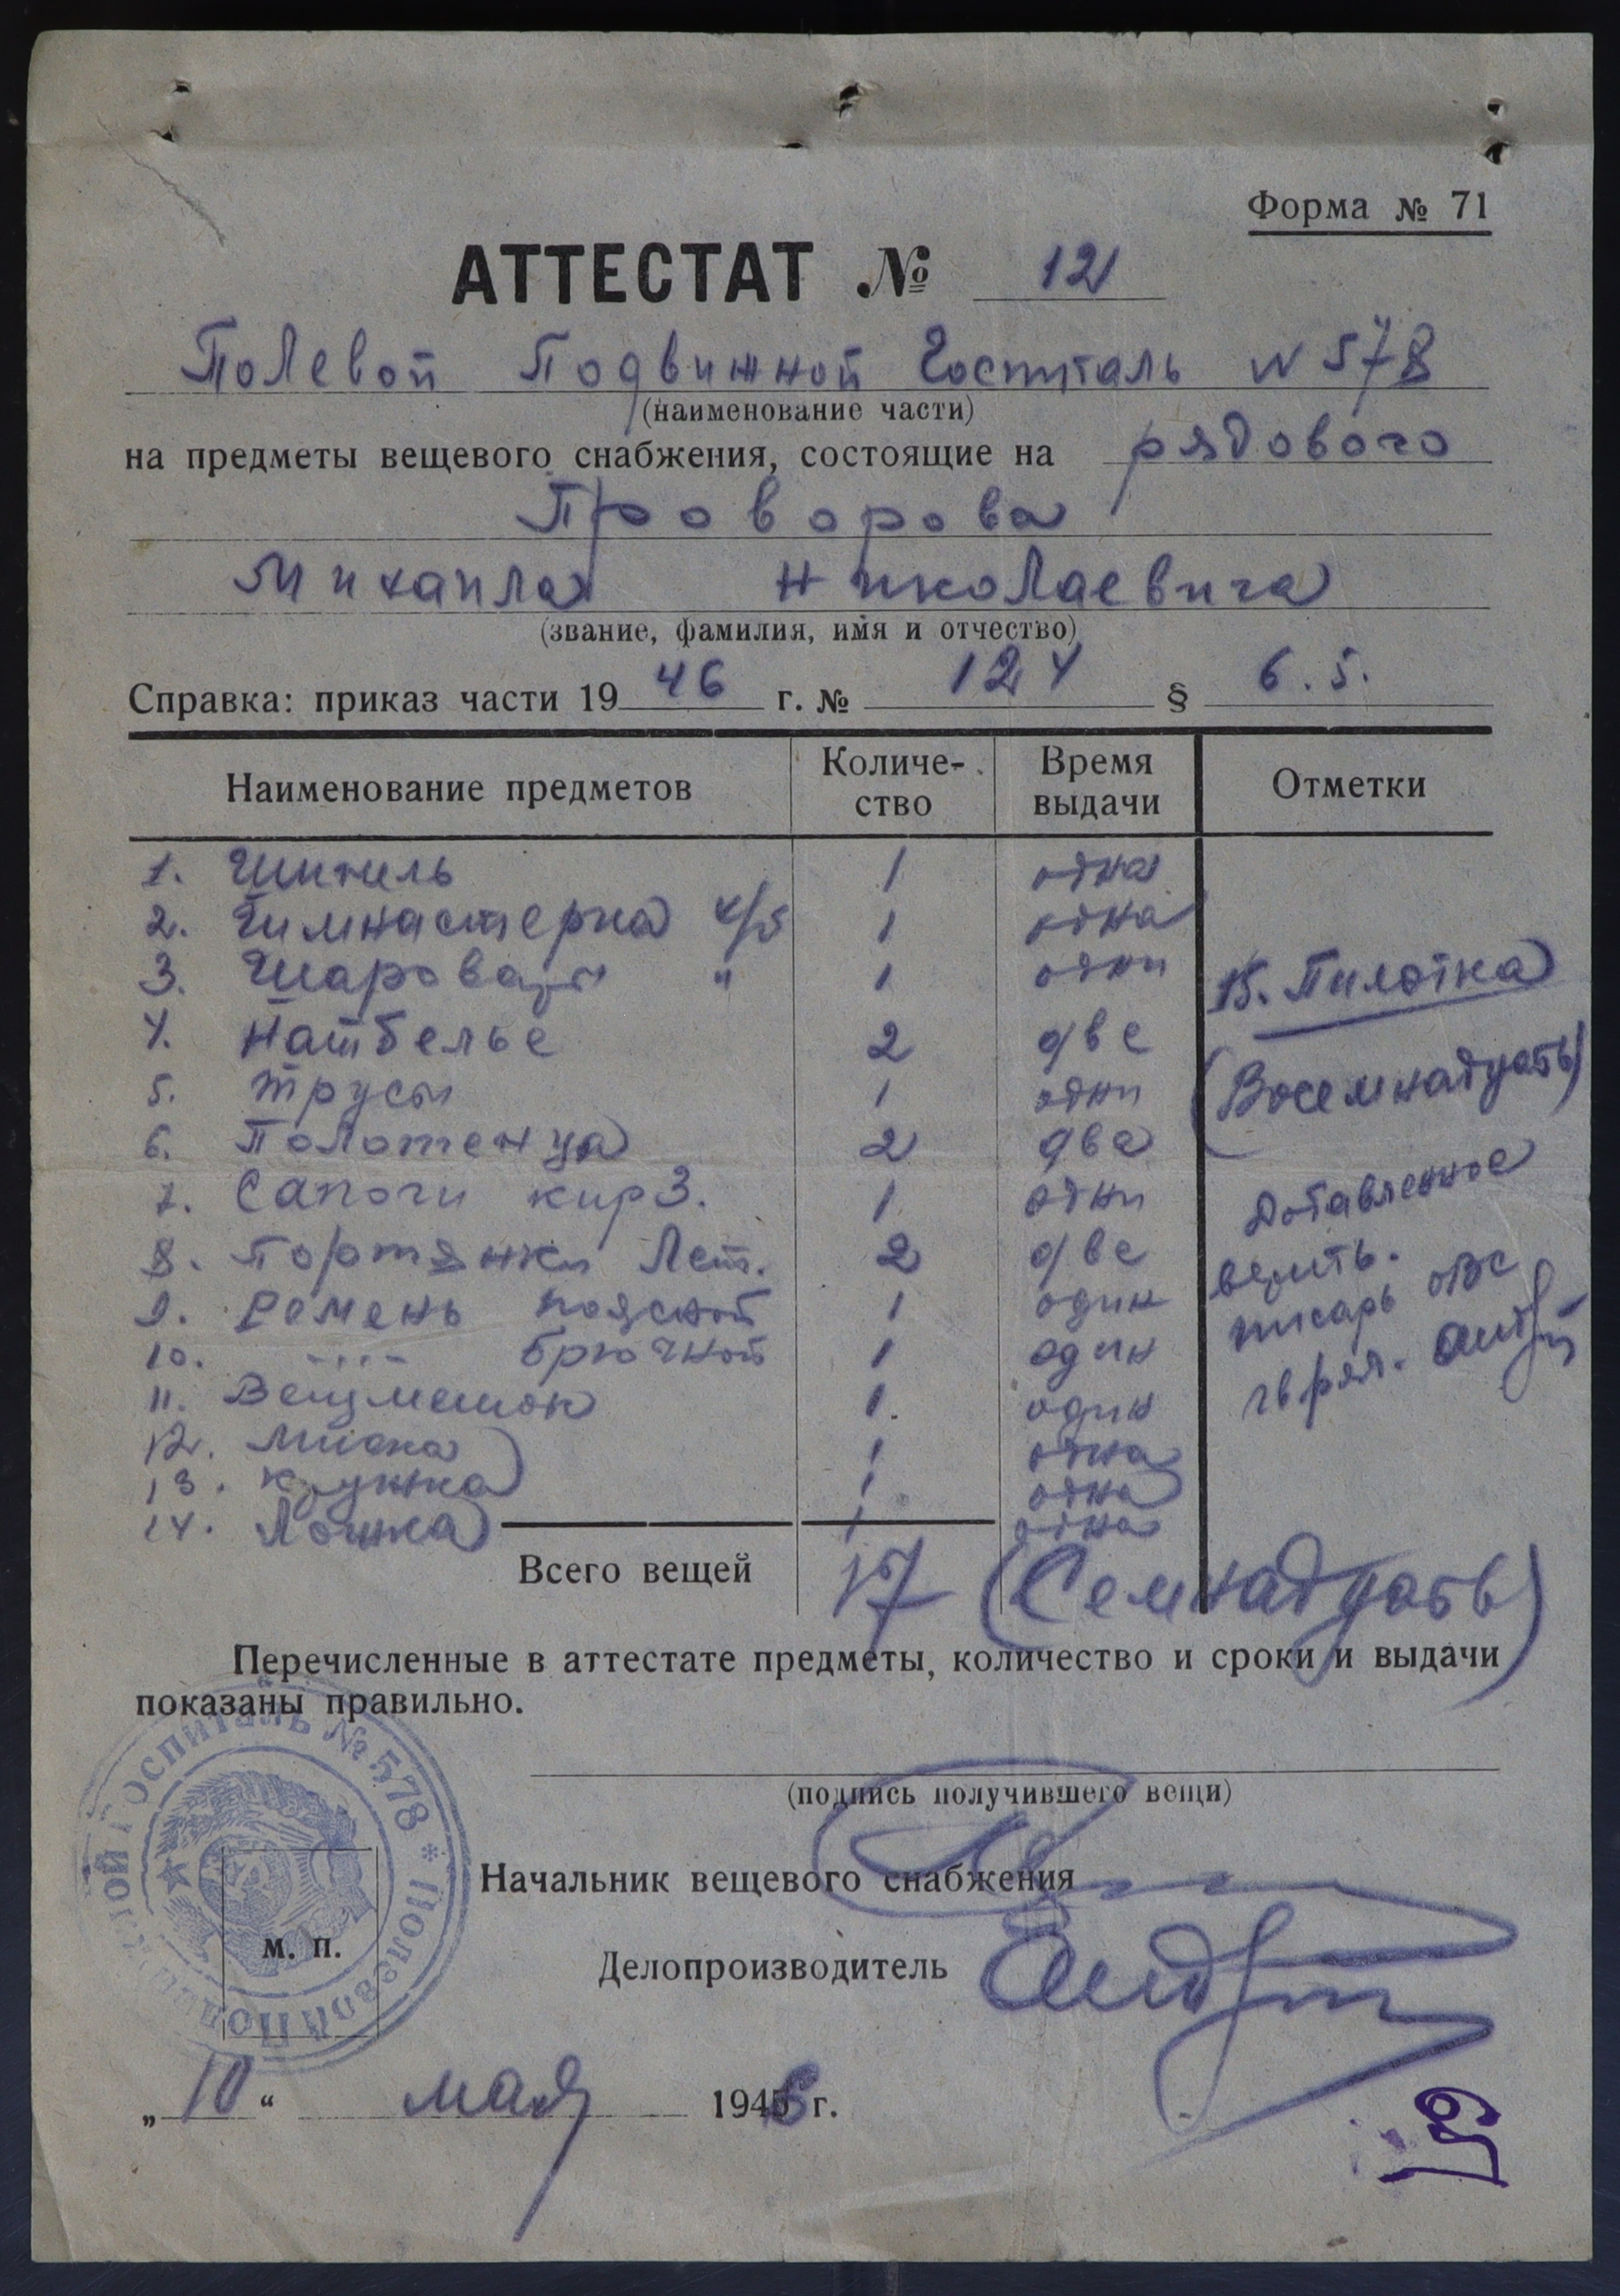 Форма № 71
АТТЕСТАТ № 121
Полевой Подвижной Госпиталь N 578
(наименование части)
на предметы вещевого снабжения, состоящие на рядового
Проворова
Михаила Николаевича
(звание, фамилия, имя и отчество)
Справка: приказ части 19 46 г. № 124 § 6.5.
Наименование предметов Количе-ство Время выдачи Отметки
1. Шинель 1 одна
2. Гимнастерка х/б 1 одна
3. Шаровары " 1 одни
4. Натбелье 2 две
5. Трусы 1 одни
6. Полотенца 2 два
7. Сапоги кирз. 1 одни
8. Портянки Лет. 2 две
9. Ремень поясной 1 один
10. -"- брючной 1 один
11. Вещмешок 1 один
12. Миска 1 одна
13. Кружка 1 одна
14. Ложка 1 одна
15. Пилотка
(Восемнадцать)
Добавленное
верить.
писарь ОВС
гв ряд.
Всего вещей 17 (Семнадцать)
Перечисленные в аттестате предметы, количество и сроки и выдачи
показаны правильно.
(подпись получившего вещи)
Начальник вещевого снабжения
Делопроизводитель
м. п.
Полевой Подвижной Госпиталь № 578 *
„ 10 “ мая 1946 г.